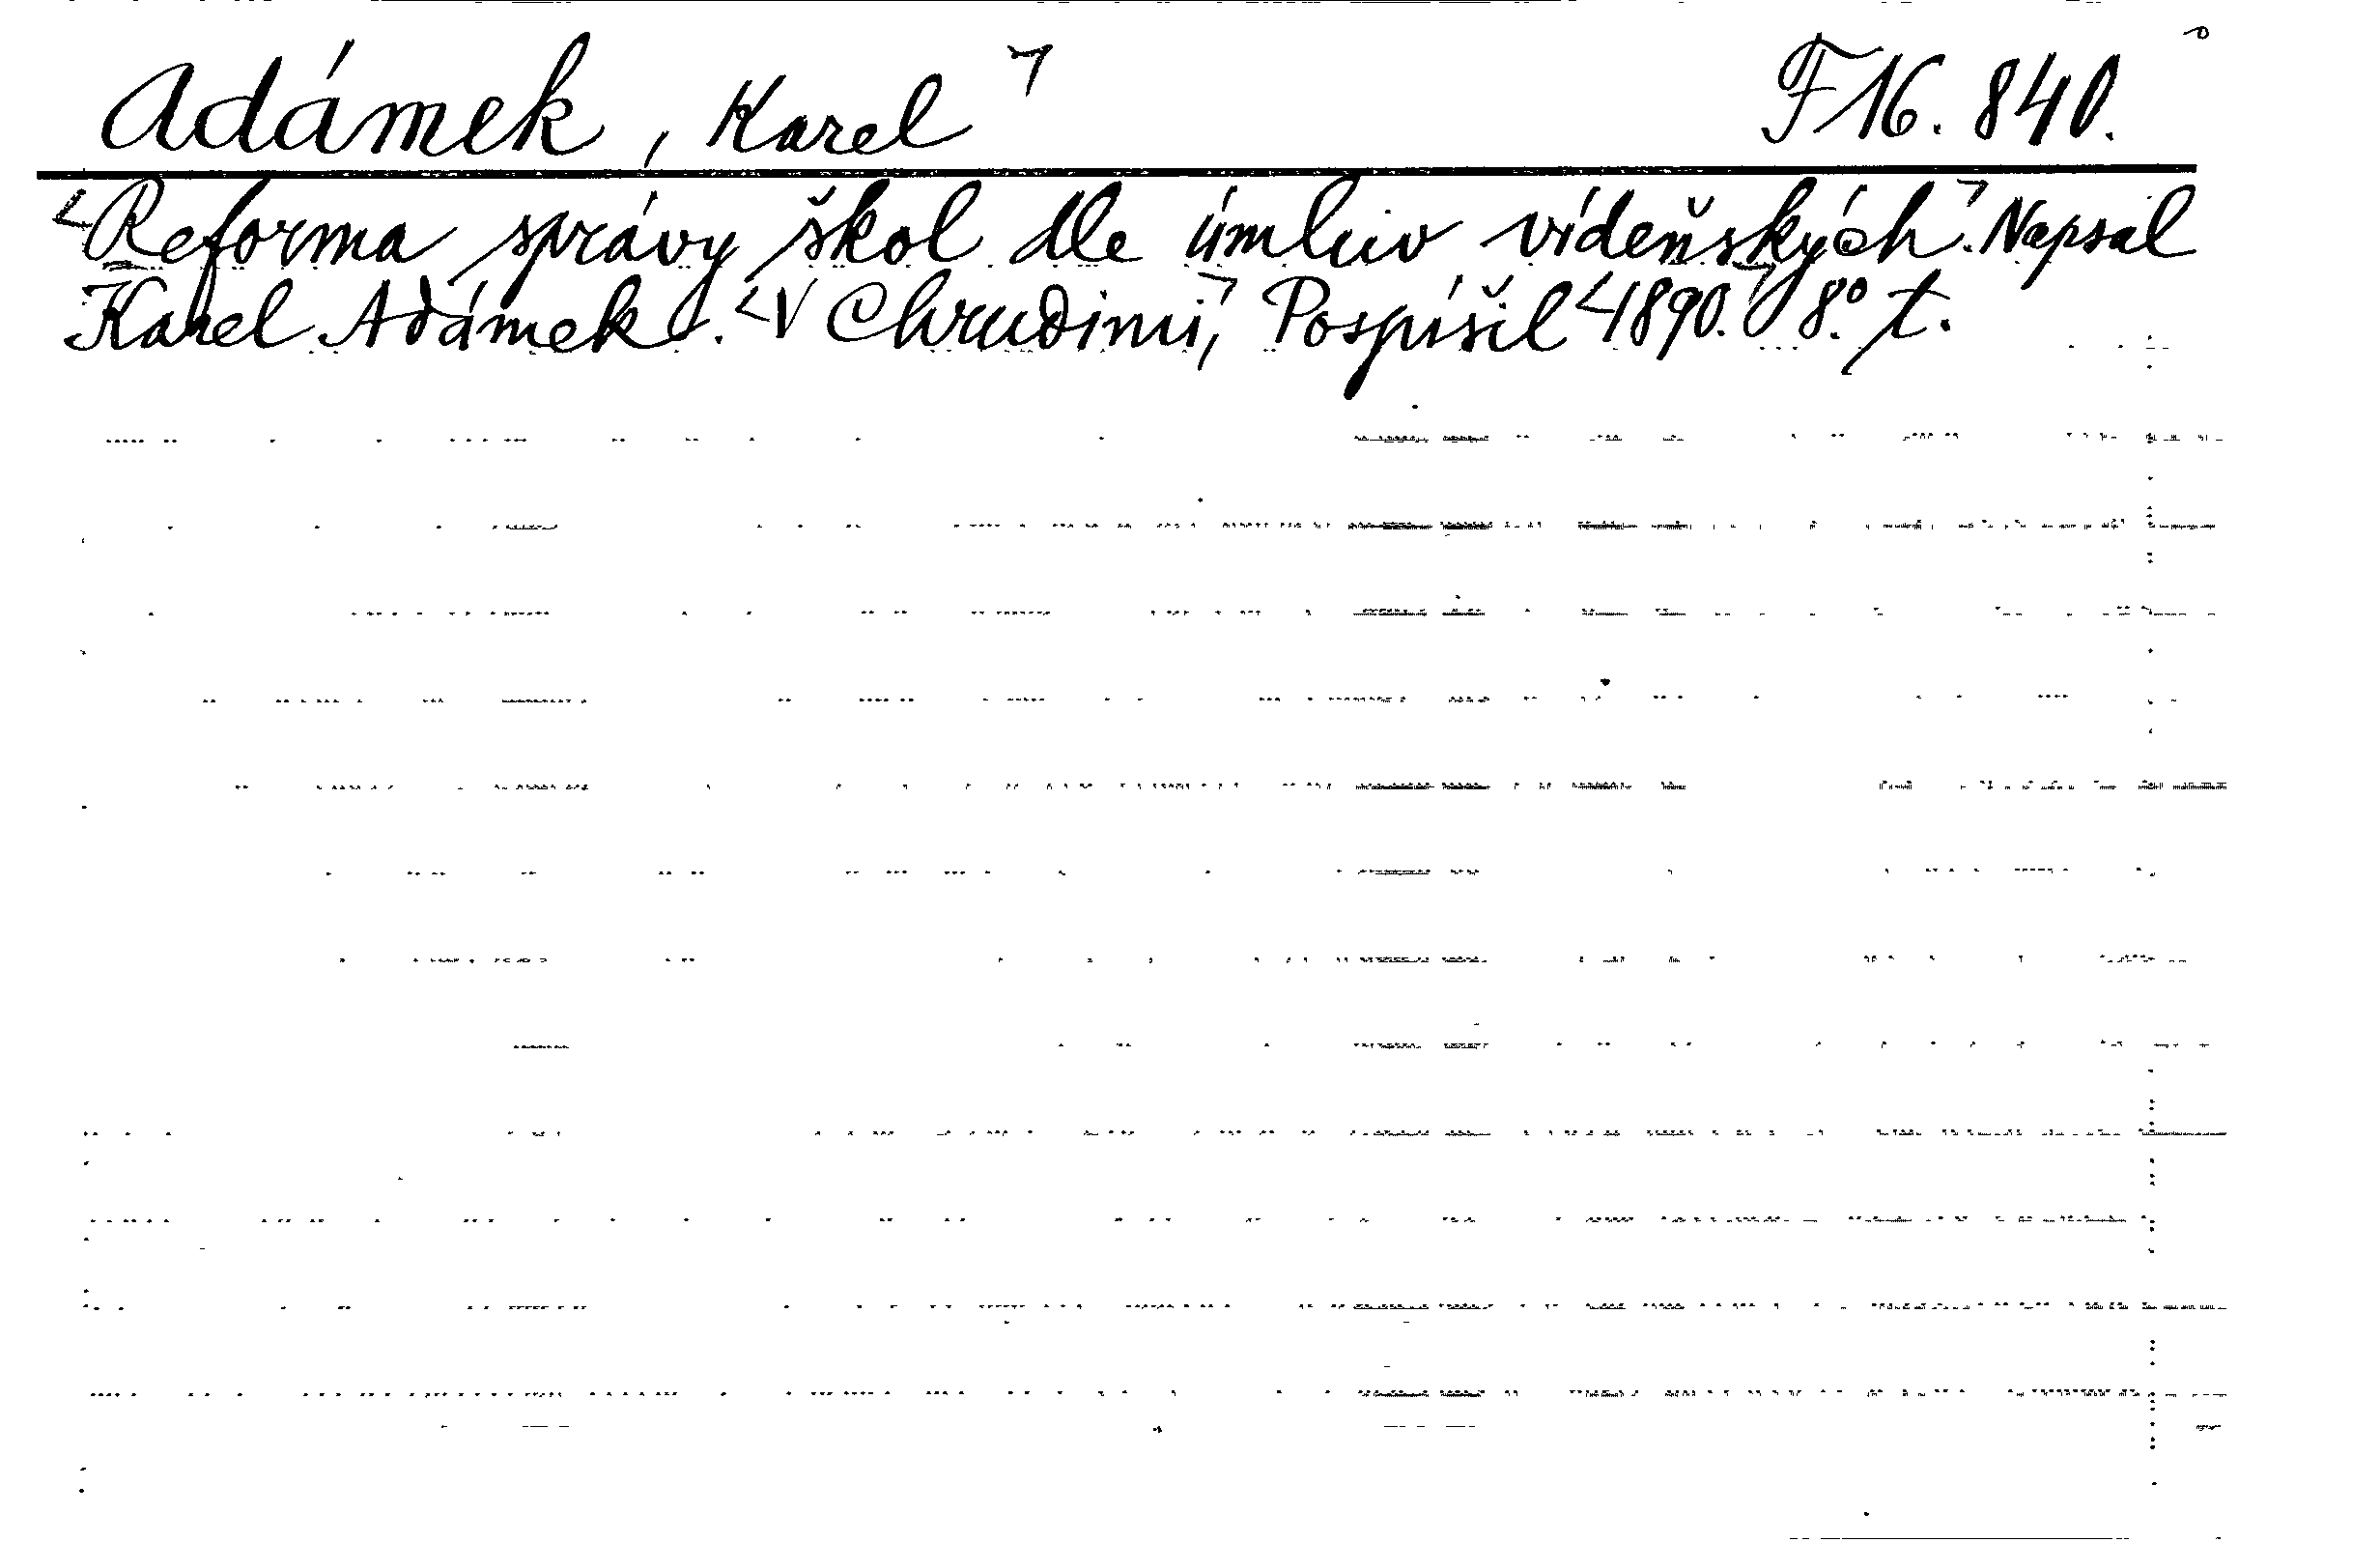 Adámek, Karel F 16.840.
Reforma správy škol dle úmluv vídeňských. Napsal
Karel Adámek. V Chrudimi, Pospíšil 1890. 8° t.